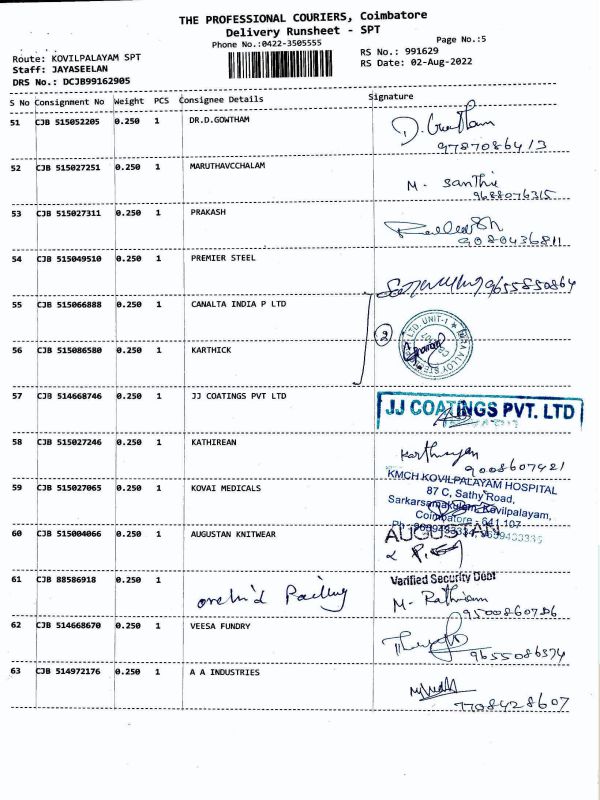 THE PROFESSIONAL COURIERS, Coimbatore
Delivery Runsheet - SPT
Phone No.:0422-3505555
Page No.:5
Route: KOVILPALAYAM SPT
RS No.: 991629
Staff: JAYASEELAN
RS Date: 02-Aug-2022
DRS No.: DCJB99162905
S No Consignment No Weight PCS Consignee Details Signature
51 CJB 515052205 0.250 1 DR.D.GOWTHAM D. Gowtham
9787086413
52 CJB 515027251 0.250 1 MARUTHAVCCHALAM M. Santhi
9688076315
53 CJB 515027311 0.250 1 PRAKASH
9080436811
54 CJB 515049510 0.250 1 PREMIER STEEL 9655850864
55 CJB 515066888 0.250 1 CANALTA INDIA P LTD
2
LTD. UNIT-1
56 CJB 515086580 0.250 1 KARTHICK
57 CJB 514668746 0.250 1 JJ COATINGS PVT LTD JJ COATINGS PVT. LTD
58 CJB 515027246 0.250 1 KATHIREAN
9008607421
59 CJB 515027065 0.250 1 KOVAI MEDICALS KMCH KOVILPALAYAM HOSPITAL
87 C, Sathy Road,
Sarkarsamakulam, Kovilpalayam,
Coimbatore - 641 107
60 CJB 515004066 0.250 1 AUGUSTAN KNITWEAR AUGUSTAN
61 CJB 88586918 0.250 1 Varified Security Debt
M. Rathinam
9500860786
62 CJB 514668670 0.250 1 VEESA FUNDRY
9655086374
63 CJB 514972176 0.250 1 A A INDUSTRIES
7708428607